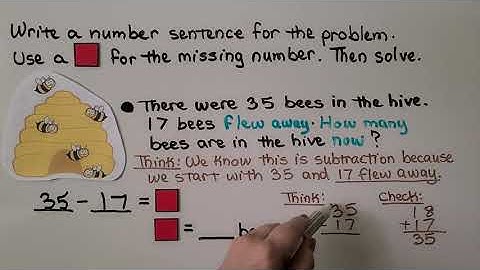 Write a number sentence for the problem.
Use a for the missing number. Then solve.
There were 35 bees in the hive.
17 bees flew away. How many
bees are in the hive now?
Think: We know this is subtraction because
we start with 35 and 17 flew away.
35 - 17 =
= ___
Think:
35
- 17
Check:
18
+17
35